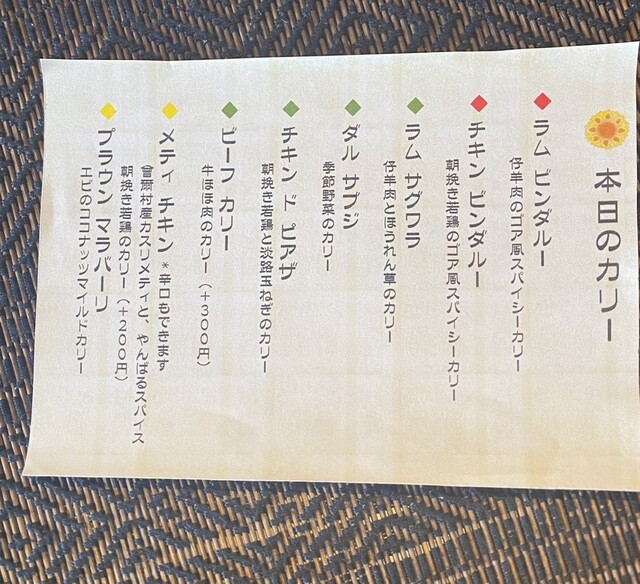 本日のカリー
◆ラム ビンダルー
仔羊肉のゴア風スパイシーカリー
◆チキン ビンダルー
朝挽き若鶏のゴア風スパイシーカリー
◆ラム サグワラ
仔羊肉とほうれん草のカリー
◆ダル サブジ
季節野菜のカリー
◆チキン ド ピアザ
朝挽き若鶏と淡路玉ねぎのカリー
◆ビーフ カリー
牛ほほ肉のカリー（＋３００円）
◆メティ チキン ＊辛口もできます
曽爾村産カスリメティと、やんばるスパイス
朝挽き若鶏のカリー（＋２００円）
◆プラウン マラバーリ
エビのココナッツマイルドカリー